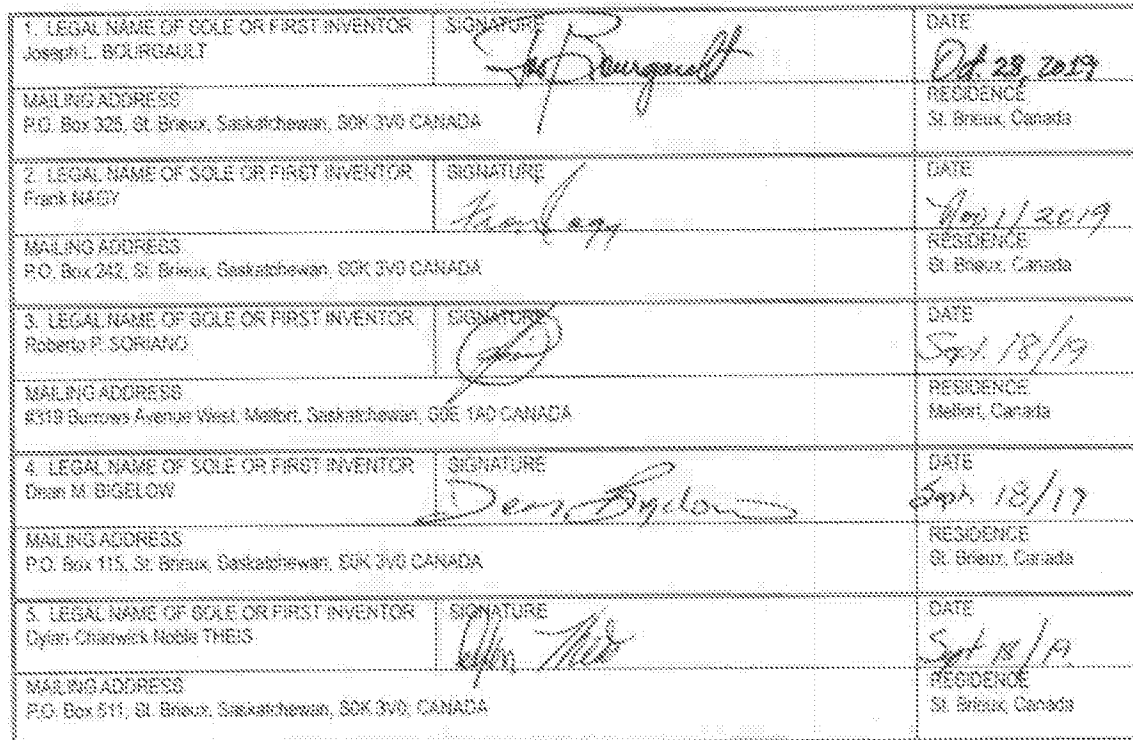 1. LEGAL NAME OF SOLE OR FIRST INVENTOR
Joseph L. BOURGAULT
SIGNATURE
Joe Bourgault
DATE
Oct 28, 2019
MAILING ADDRESS
P.O. Box 325, St. Brieux, Saskatchewan, S0K 3V0 CANADA
RESIDENCE
St. Brieux, Canada
2. LEGAL NAME OF SOLE OR FIRST INVENTOR
Frank NAGY
SIGNATURE
DATE
Nov 1/2019
MAILING ADDRESS
P.O. Box 242, St. Brieux, Saskatchewan, S0K 3V0 CANADA
RESIDENCE
St. Brieux, Canada
3. LEGAL NAME OF SOLE OR FIRST INVENTOR
P. SORIANO
SIGNATURE
DATE
Sept. 18/19
MAILING ADDRESS
#319 Burrows Avenue West, Melfort, Saskatchewan, S0E 1A0 CANADA
RESIDENCE
Melfort, Canada
4. LEGAL NAME OF SOLE OR FIRST INVENTOR
M. BIGELOW
SIGNATURE
Bigelow
DATE
Sept. 18/19
MAILING ADDRESS
P.O. Box 115, St. Brieux, Saskatchewan, S0K 3V0 CANADA
RESIDENCE
St. Brieux, Canada
5. LEGAL NAME OF SOLE OR FIRST INVENTOR
Dylan Chadwick Noble THEIS
SIGNATURE
DATE
Sept 18/19
MAILING ADDRESS
P.O. Box 511, St. Brieux, Saskatchewan, S0K 3V0, CANADA
RESIDENCE
St. Brieux, Canada